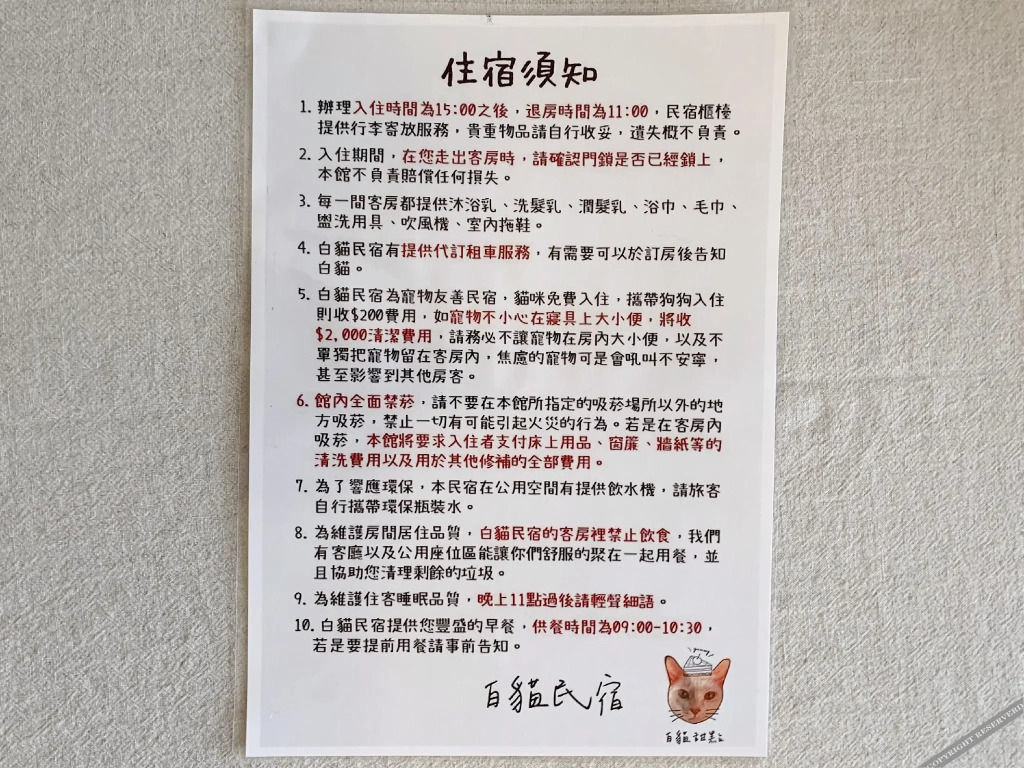 住宿須知
1. 辦理入住時間為15:00之後，退房時間為11:00，民宿櫃檯
提供行李寄放服務，貴重物品請自行收妥，遺失概不負責。
2. 入住期間，在您走出客房時，請確認門鎖是否已經鎖上，
本館不負責賠償任何損失。
3. 每一間客房都提供沐浴乳、洗髮乳、潤髮乳、浴巾、毛巾、
盥洗用具、吹風機、室內拖鞋。
4. 白貓民宿有提供代訂租車服務，有需要可以於訂房後告知
白貓。
5. 白貓民宿為寵物友善民宿，貓咪免費入住，攜帶狗狗入住
則收$200費用，如寵物不小心在寢具上大小便，將收
$2,000清潔費用，請務必不讓寵物在房內大小便，以及不
單獨把寵物留在客房內，焦慮的寵物可是會吼叫不安寧，
甚至影響到其他房客。
6. 館內全面禁菸，請不要在本館所指定的吸菸場所以外的地
方吸菸，禁止一切有可能引起火災的行為。若是在客房內
吸菸，本館將要求入住者支付床上用品、窗簾、牆紙等的
清洗費用以及用於其他修補的全部費用。
7. 為了響應環保，本民宿在公用空間有提供飲水機，請旅客
自行攜帶環保瓶裝水。
8. 為維護房間居住品質，白貓民宿的客房裡禁止飲食，我們
有客廳以及公用座位區能讓你們舒服的聚在一起用餐，並
且協助您清理剩餘的垃圾。
9. 為維護住客睡眠品質，晚上11點過後請輕聲細語。
10. 白貓民宿提供您豐盛的早餐，供餐時間為09:00-10:30，
若是要提前用餐請事前告知。
白貓民宿
白貓甜點
COPYRIGHT RESERVED